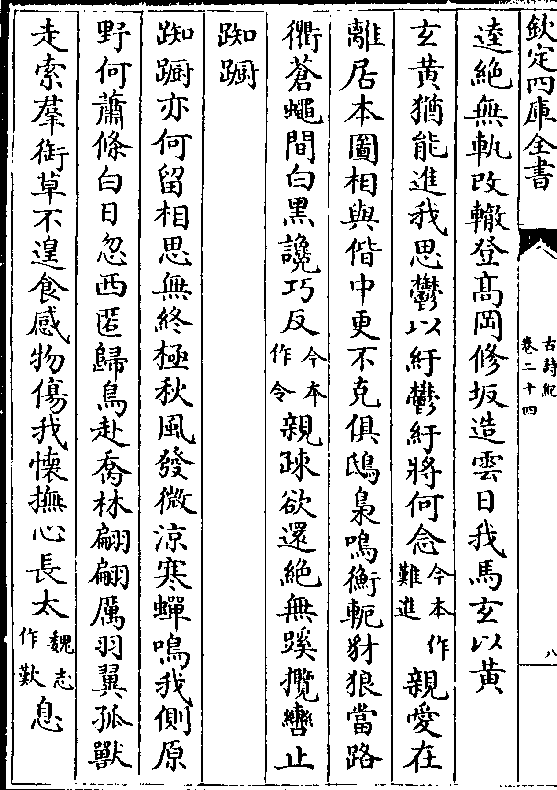 欽定四庫全書
古詩紀
卷二十四
八
逵絶無軌改轍登髙岡修坂造雲日我馬玄以黄
玄黄猶能進我思鬱以紆鬱紆將何念今本作難進親愛在
離居本圖相與偕中更不克俱鴟梟鳴衡軛豺狼當路
衢蒼蠅間白黒讒巧反今本作令親疎欲還絶無蹊攬轡止
踟蹰
踟蹰亦何留相思無終極秋風發微涼寒蟬鳴我側原
野何蕭條白日忽西匿歸鳥赴喬林翩翩厲羽翼孤獸
走索羣銜草不遑食感物傷我懷撫心長太魏志作歎息